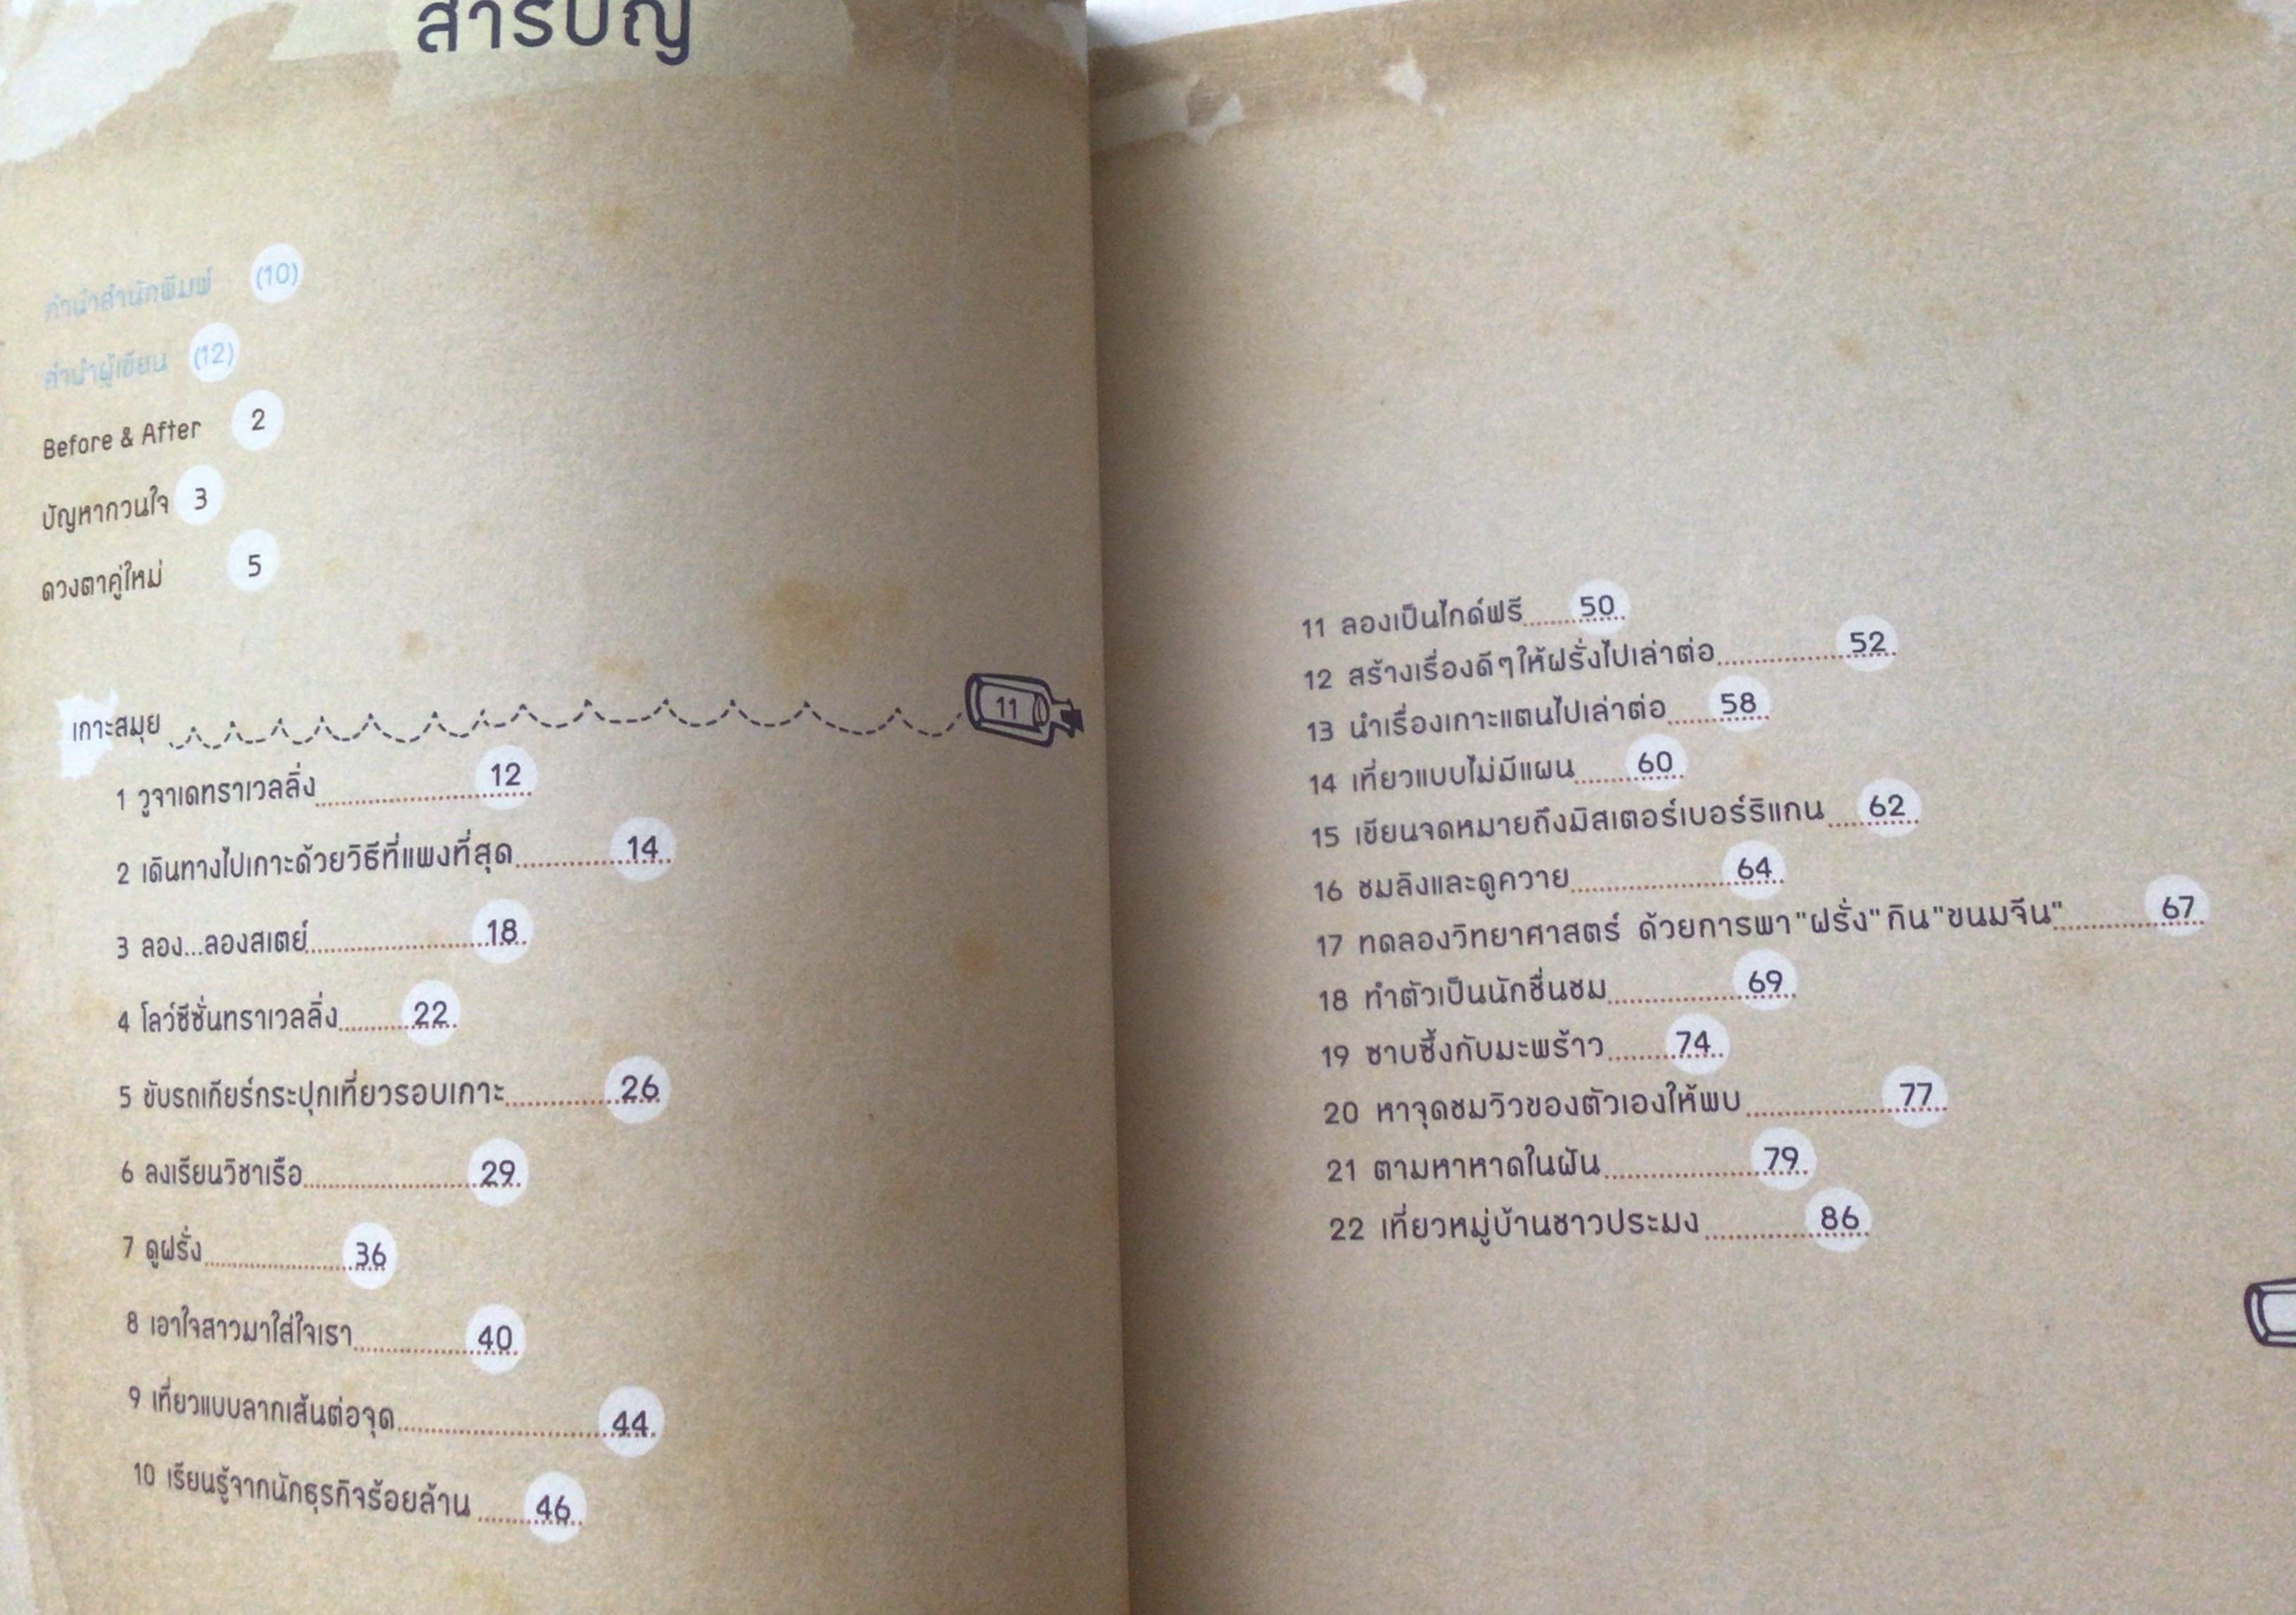 สารบัญ
คำนำสำนักพิมพ์ (10)
คำนำผู้เขียน (12)
Before & After 2
ปัญหากวนใจ 3
ดวงตาคู่ใหม่ 5
เกาะสมุย 11
1 วูจาเดทราเวลลิ่ง 12
2 เดินทางไปเกาะด้วยวิธีที่แพงที่สุด 14
3 ลอง...ลองสเตย์ 18
4 โลว์ซีซั่นทราเวลลิ่ง 22
5 ขับรถเกียร์กระปุกเที่ยวรอบเกาะ 26
6 ลงเรียนวิชาเรือ 29
7 ดูฝรั่ง 36
8 เอาใจสาวมาใส่ใจเรา 40
9 เที่ยวแบบลากเส้นต่อจุด 44
10 เรียนรู้จากนักธุรกิจร้อยล้าน 46
11 ลองเป็นไกด์ฟรี 50
12 สร้างเรื่องดีๆให้ฝรั่งไปเล่าต่อ 52
13 นำเรื่องเกาะแตนไปเล่าต่อ 58
14 เที่ยวแบบไม่มีแผน 60
15 เขียนจดหมายถึงมิสเตอร์เบอร์ริแกน 62
16 ชมลิงและดูควาย 64
17 ทดลองวิทยาศาสตร์ ด้วยการพา"ฝรั่ง"กิน"ขนมจีน" 67
18 ทำตัวเป็นนักชื่นชม 69
19 ซาบซึ้งกับมะพร้าว 74
20 หาจุดชมวิวของตัวเองให้พบ 77
21 ตามหาหาดในฝัน 79
22 เที่ยวหมู่บ้านชาวประมง 86